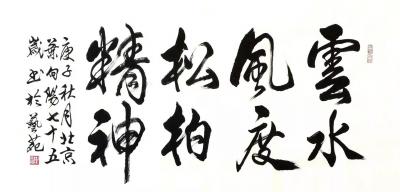 雲水
風度
松柏
精神
庚子秋月北京
兼向陽七十五
歲書於藝苑